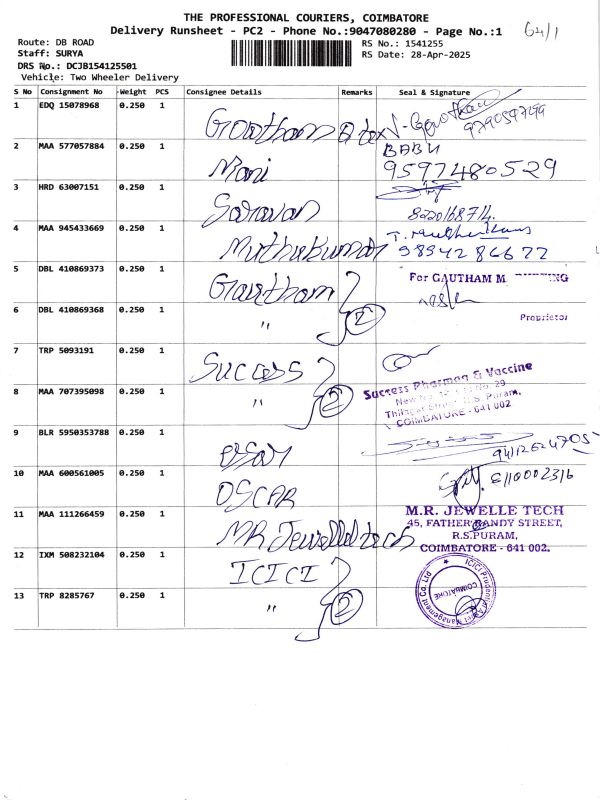 THE PROFESSIONAL COURIERS, COIMBATORE
Delivery Runsheet - PC2 - Phone No.:9047080280 - Page No.:1
64/1
Route: DB ROAD
RS No.: 1541255
Staff: SURYA
RS Date: 28-Apr-2025
DRS No.: DCJB154125501
Vehicle: Two Wheeler Delivery
S No Consignment No Weight PCS Consignee Details Remarks Seal & Signature
1 EDQ 15078968 0.250 1 Gowtham
2 MAA 577057884 0.250 1 Mani BABU 9597480529
3 HRD 63007151 0.250 1 Saravan
4 MAA 945433669 0.250 1 Muthukumar 9894286677
5 DBL 410869373 0.250 1 Gautham For GAUTHAM M
6 DBL 410869368 0.250 1 " 2 Proprietor
7 TRP 5093191 0.250 1 Success
8 MAA 707395098 0.250 1 " 2 Success Pharma & Vaccine
R.S. Puram,
COIMBATORE - 641 002
9 BLR 5950353788 0.250 1
10 MAA 600561005 0.250 1 OSCAR
11 MAA 111266459 0.250 1 MR Jewelle tech M.R. JEWELLE TECH
45, FATHER RANDY STREET,
R.S.PURAM,
COIMBATORE - 641 002.
12 IXM 508232104 0.250 1 ICICI
13 TRP 8285767 0.250 1 " 2
ICICI Prudential Asset Management Co. Ltd
COIMBATORE